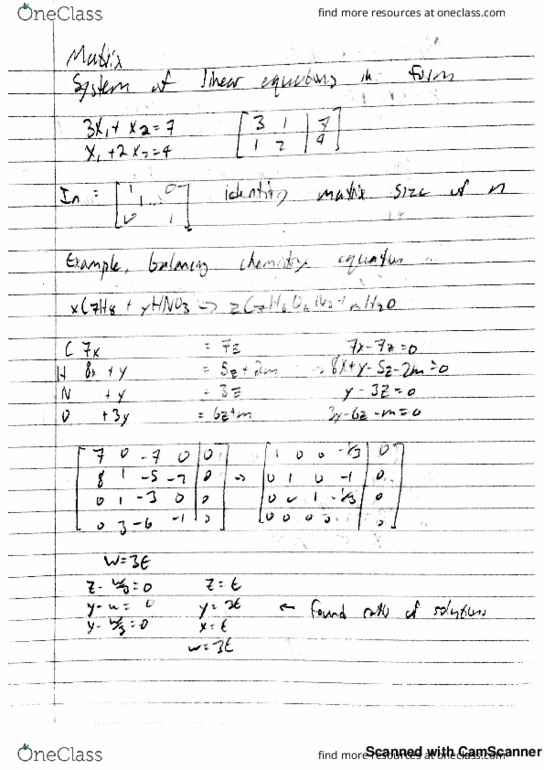 OneClass find more resources at oneclass.com
Matrix
System of linear equations in form
3x₁ + x₂ = 7 [ 3 1 | 7 ]
x₁ + 2x₂ = 4 [ 1 2 | 4 ]
In = [ 1 0 identity matrix size of n
1
0 1 ]
Example, balancing chemistry equation
xC7H8 + yHNO3 → zC7H5O6N3 + mH2O
C 7x = 7z 7x-7z=0
H 8x + y = 5z+2m → 8x+y-5z-2m=0
N + y = 3z y-3z=0
O + 3y = 6z+m 3y-6z-m=0
[ 7 0 -7 0 | 0 ] [ 1 0 0 -1/3 | 0 ]
[ 8 1 -5 -2 | 0 ] → [ 0 1 0 -1 | 0 ]
[ 0 1 -3 0 | 0 ] [ 0 0 1 -1/3 | 0 ]
[ 0 3 -6 -1 | 0 ] [ 0 0 0 0 | 0 ]
w=3t
z - w/3 = 0 z=t
y-w= 0 y=3t ← found ratio of solutions
y - w/3 = 0 x=t
w=3t
OneClass find more resources at oneclass.com
Scanned with CamScanner